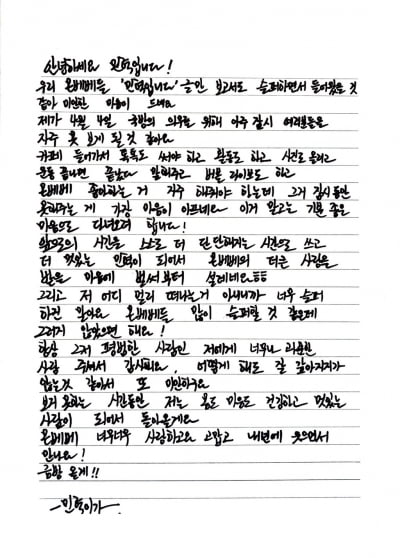 안녕하세요 민혁입니다!
우리 몬베베들 '민혁입니다' 글만 보고서도 슬퍼하면서 들어왔을 것
같아 미안한 마음이 드네요
제가 4월 4일 국방의 의무를 위해 아주 잠시 여러분들을
자주 못 보게 될 것 같아요
카페 들어가서 톡톡도 써야 하고 활동도 하고 사진도 올리고
운동 끝나면 끝났다 말해주고 버블 라이브도 하고
몬베베 좋아하는 거 자주 해줘야 하는데 그거 잠시 동안
못해주는 게 가장 마음이 아프네요 이거 말고는 기분 좋은
마음으로 다녀오려 합니다!
앞으로의 시간을 스스로 더 단단해지는 시간으로 쓰고
더 멋있는 민혁이 되어서 몬베베의 더 큰 사랑을
받을 마음에 벌써부터 설레네요ㅎㅎ
그리고 저 어디 멀리 떠나는 거 아니니까 너무 슬퍼
하진 말아요 몬베베들 많이 슬퍼할 것 같은데
그러지 않았으면 해요!
항상 그저 평범한 사람인 저에게 너무나 과분한
사랑 주셔서 감사해요. 어떻게 해도 다 갚아지지가
않는 것 같아서 또 미안하구요
보지 못하는 시간동안 저는 몸도 마음도 건강하고 멋있는
사람이 되어서 돌아올게요
몬베베 너무너무 사랑하고요 고맙고 내년에 웃으면서
만나요!
금방 올게!!
-민혁이가-